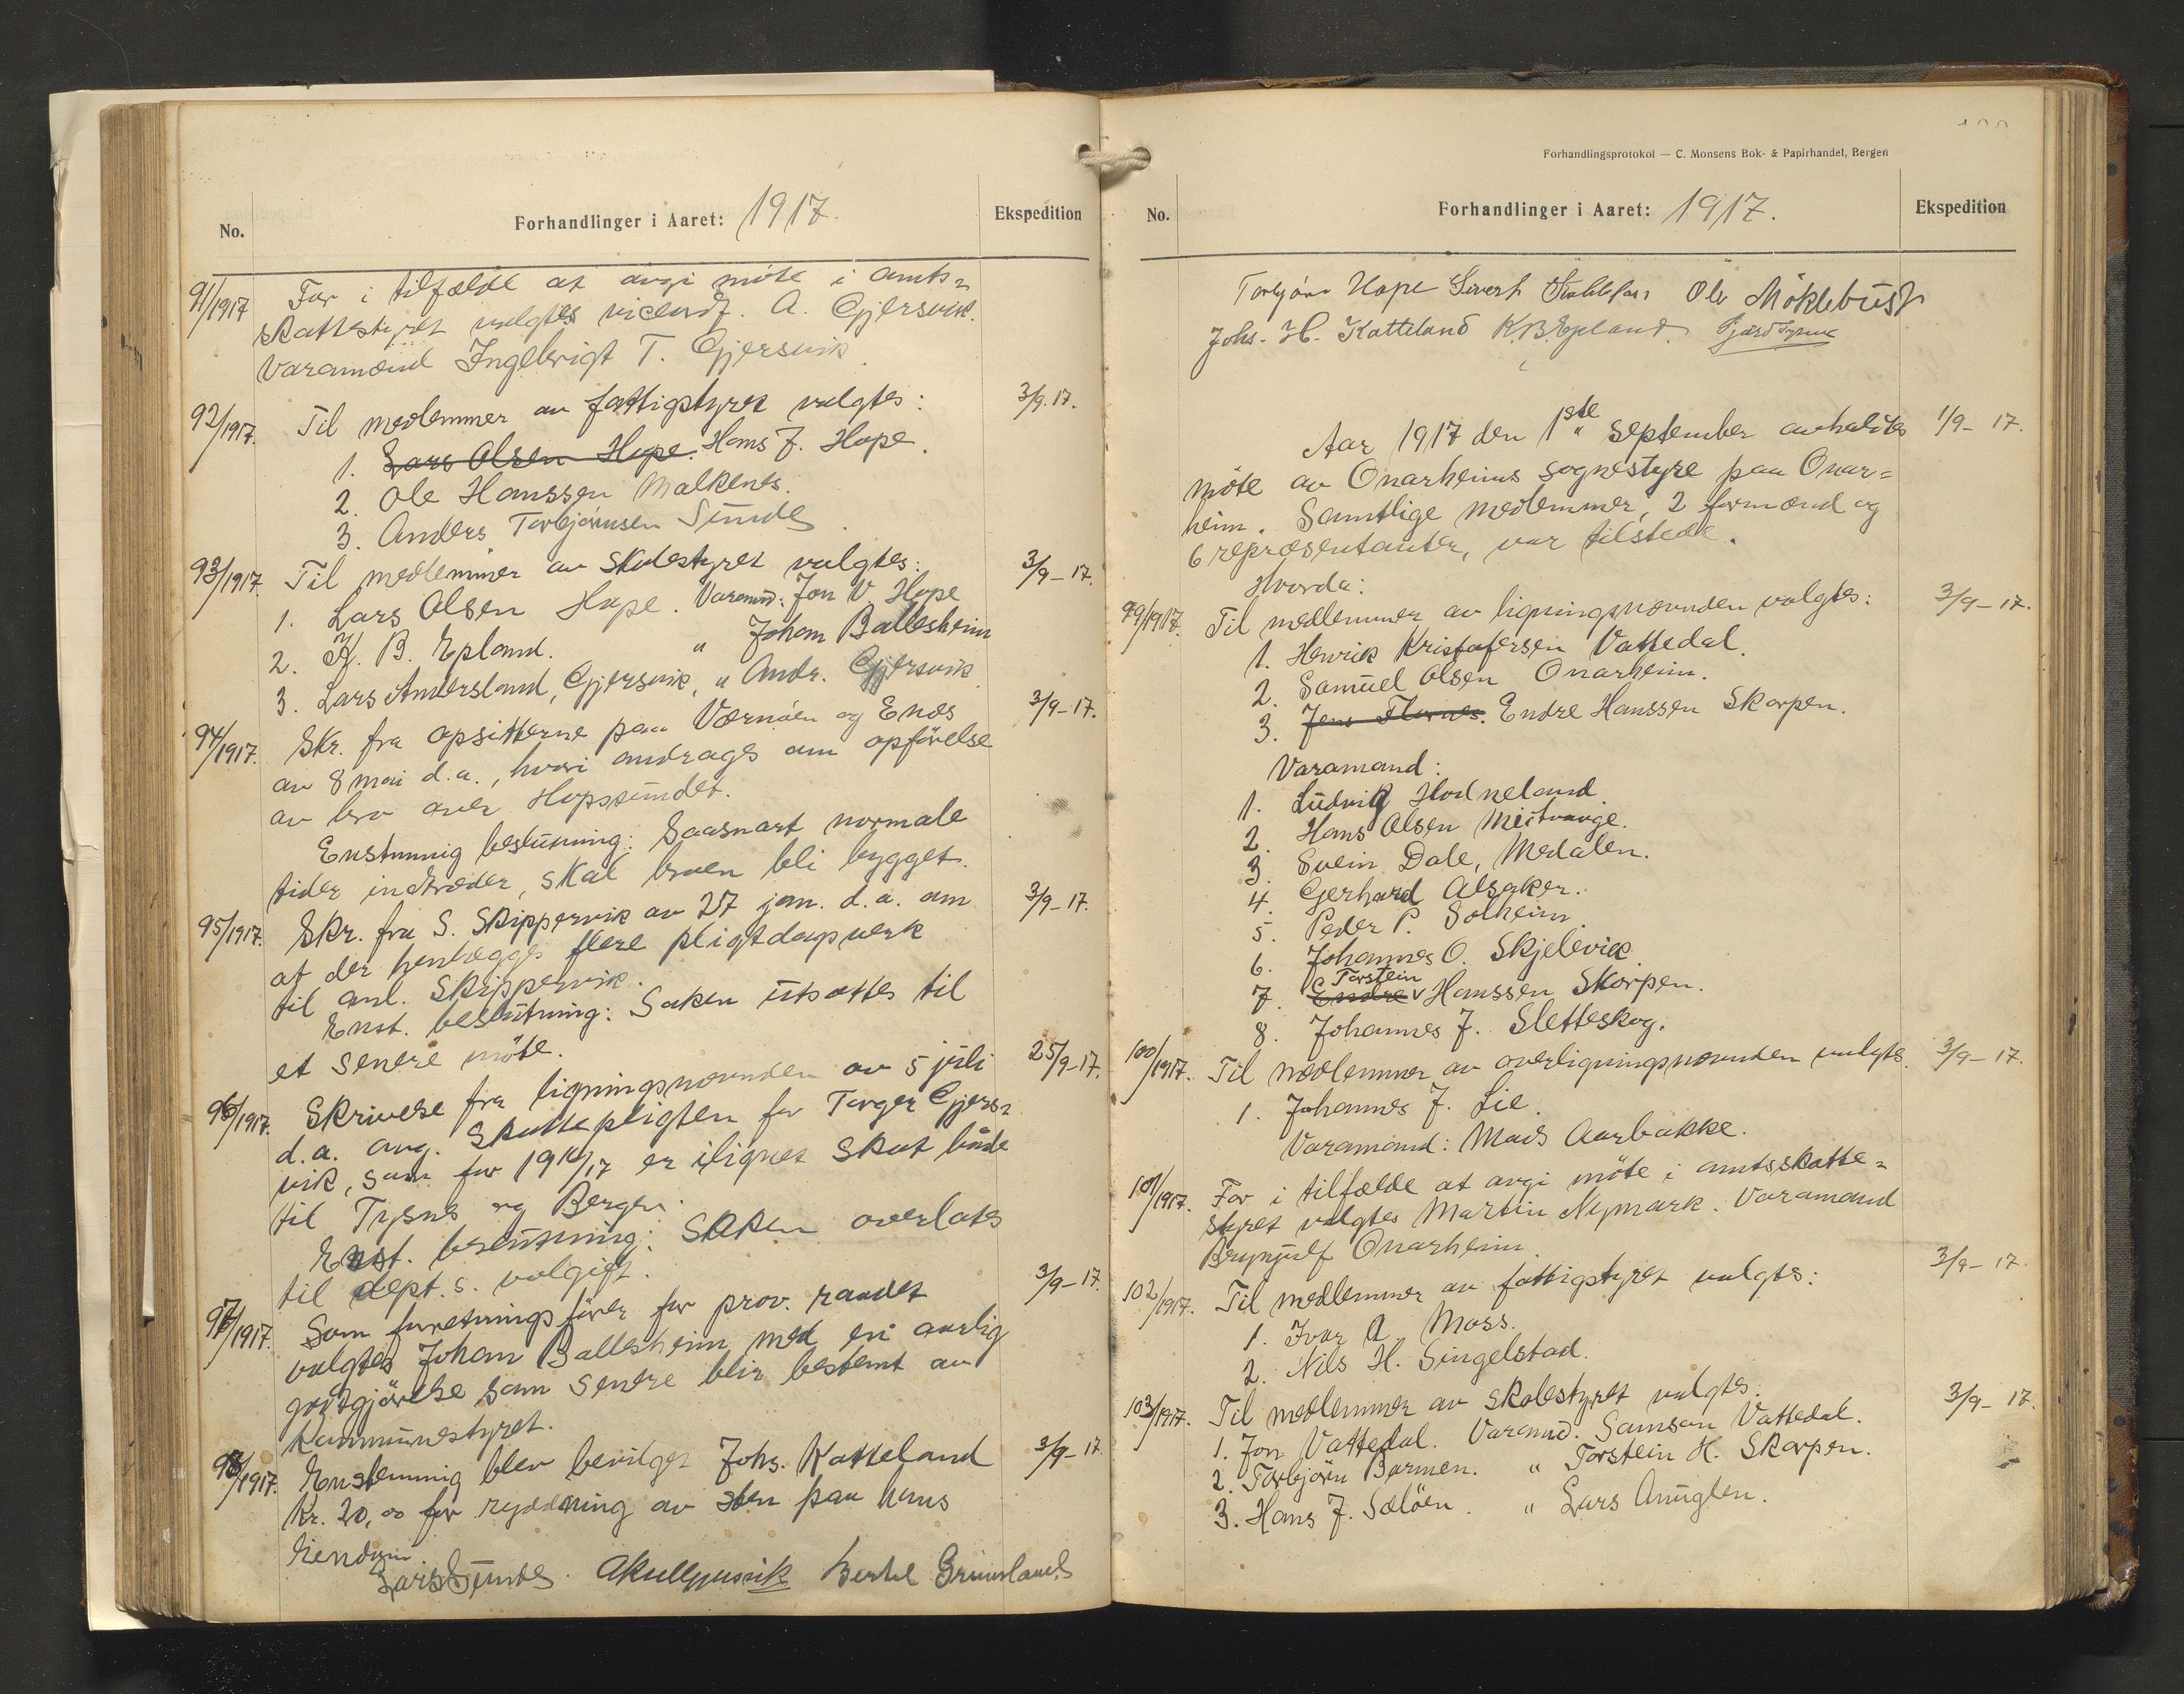 No.
Forhandlinger i Aaret: 1917.
Ekspedition
91/1917 For i tilfælde at avgi möte i amts=
skattestyret valgtes A. Gjersvik.
Varamand Ingebrigt T. Gjersvik
92/1917. Til medlemmer av fattigstyret valgtes: 3/9.17.
1. Lars Olsen Hope. Hans J. Hope.
2. Ole Hanssen Malkenes.
3. Anders Torbjörnsen Sunde
93/1917. Til medlemmer av skolestyret valgtes: 3/9-17.
1. Lars Olsen Hope. Varamd: Jon V. Hope
2. K. B. Epland. " Johan Ballesheim
3. Lars Andersland, Gjersvik, " Andr. Gjersvik
94/1917. Skr. fra opsitterne paa Værnöen og Enes 3/9-17.
av 8 mai d.a., hvori andrages om opförelse
av bro over Hopssundet.
Enstemmig beslutning: Saasnart normale
tider indtræder, skal broen bli bygget.
95/1917. Skr. fra S. Skippervik av 27 jan. d.a. om 3/9-17.
at der henlægges flere pligtdagsverk
til anl. Skippervik.
Enst. beslutning: Saken utsættes til
et senere möte.
96/1917. Skrivelse fra ligningsnævnden av 5 juli 25/9-17.
d.a. ang. skattepligten for Torger Gjers=
vik, som for 1916/17 er ilignet skat baade
til Tysnes og Bergen.
Enst. beslutning: Saken overlates
til dept.s. valgift.
97/1917. Som forretningsförer for prov. raadet 3/9-17.
valgtes Johan Ballesheim med en aarlig
godtgjörelse som senere blir bestemt av
kommunestyret.
98/1917. Enstemmig blev bevilget Johs. Katteland 3/9-17.
Kr. 20,00 for ryddning av sten paa hans
eiendom.
Lars Sunde. Bertel Grimsland
Forhandlingsprotokol — C. Monsens Bok- & Papirhandel, Bergen
No.
Forhandlinger i Aaret: 1917.
Ekspedition
Torbjörn Hope Sivert Ole Möklebust
Johs. H. Katteland K.B. Epland.
Aar 1917 den 1ste september avholdtes 1/9-17.
möte av Onarheims sognestyre paa Onar=
heim. Samtlige medlemmer, 2 formænd og
6 repræsentanter, var tilstede.
Hvorda:
99/1917. Til medlemmer av ligningsnævnden valgtes: 3/9-17.
1. Henrik Kristofersen Vattedal.
2. Samuel Olsen Onarheim.
3. Jens Flornes. Endre Hanssen Skorpen.
Varamænd:
1. Ludvig Hodneland.
2. Hans Olsen
3. Svein Dale, Medalen.
4. Gerhard Alsaker.
5. Peder P. Solheim.
6. Johannes O. Skjelevik.
Torstein
7. Endre v Hanssen Skorpen.
8. Johannes J. Sletteskog.
100/1917. Til medlemmer av overligningsnævnden valgtes. 3/9-17.
1. Johannes J. Lie.
Varamand: Mads Aarbakke.
101/1917. For i tilfælde at avgi möte i amtsskatte=
styret valgtes Martin Nymark. Varamand
Brynjulf Onarheim.
102/1917. Til medlemmer av fattigstyret valgtes: 3/9-17.
1. Ivar A. Moss.
2. Nils H. Singelstad.
103/1917. Til medlemmer av skolestyret valgtes. 3/9-17.
1. Jon Vattedal. Varamd. Samson Vattedal.
2. Torbjörn Barmen. " Torstein H. Skorpen.
3. Hans J. Sælöen. " Lars Anuglen.